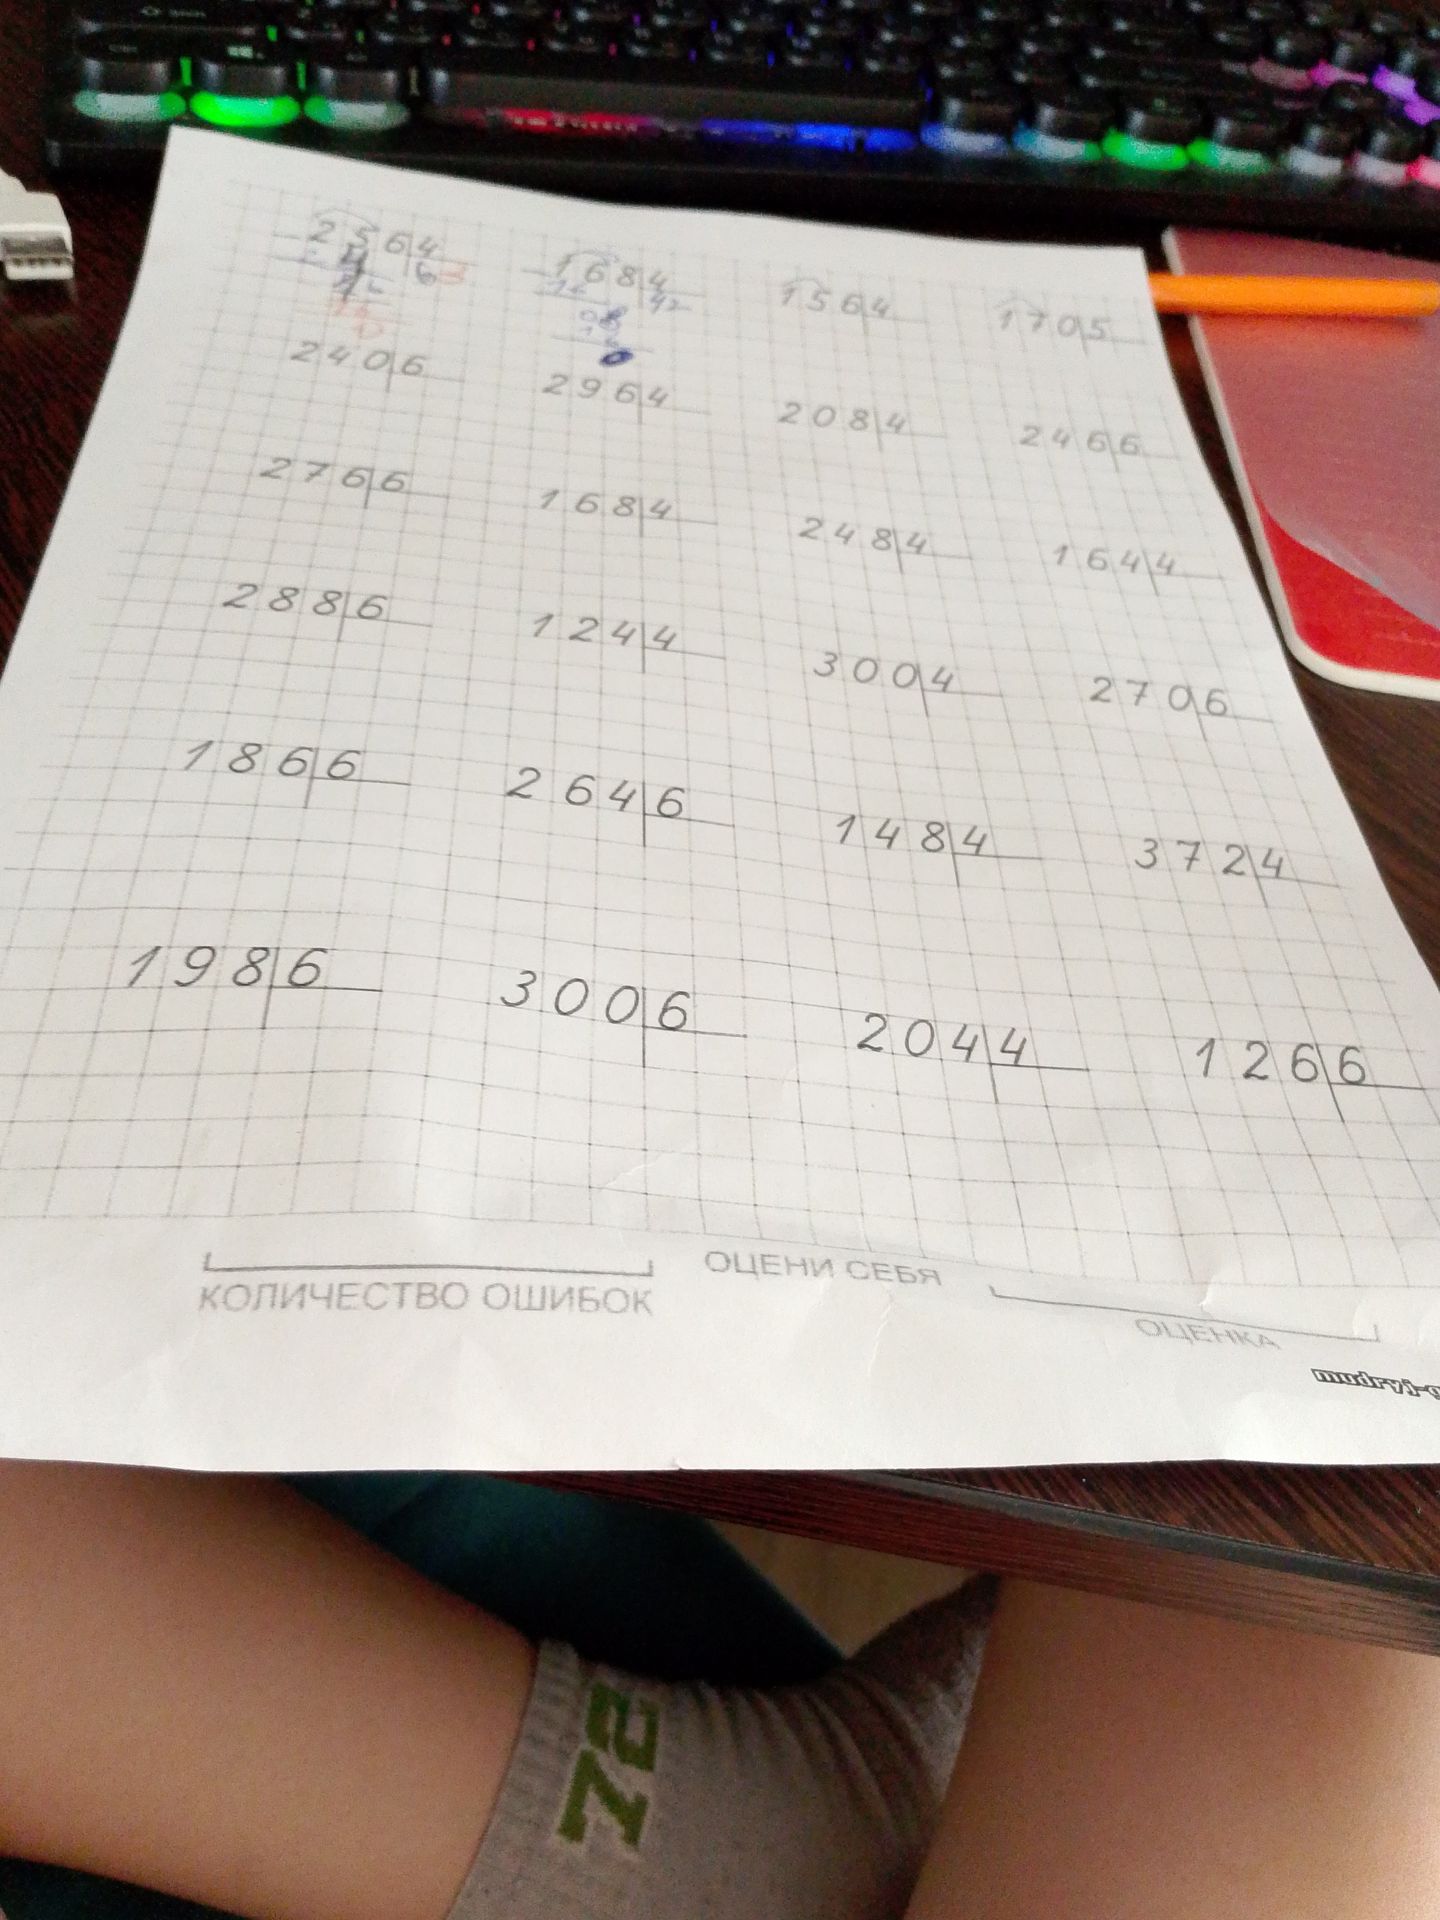 256|4
6
168|4
42
156|4
170|5
240|6
296|4
208|4
246|6
276|6
168|4
248|4
164|4
288|6
124|4
300|4
270|6
186|6
264|6
148|4
372|4
198|6
300|6
204|4
126|6
КОЛИЧЕСТВО ОШИБОК
ОЦЕНИ СЕБЯ
ОЦЕНКА
72